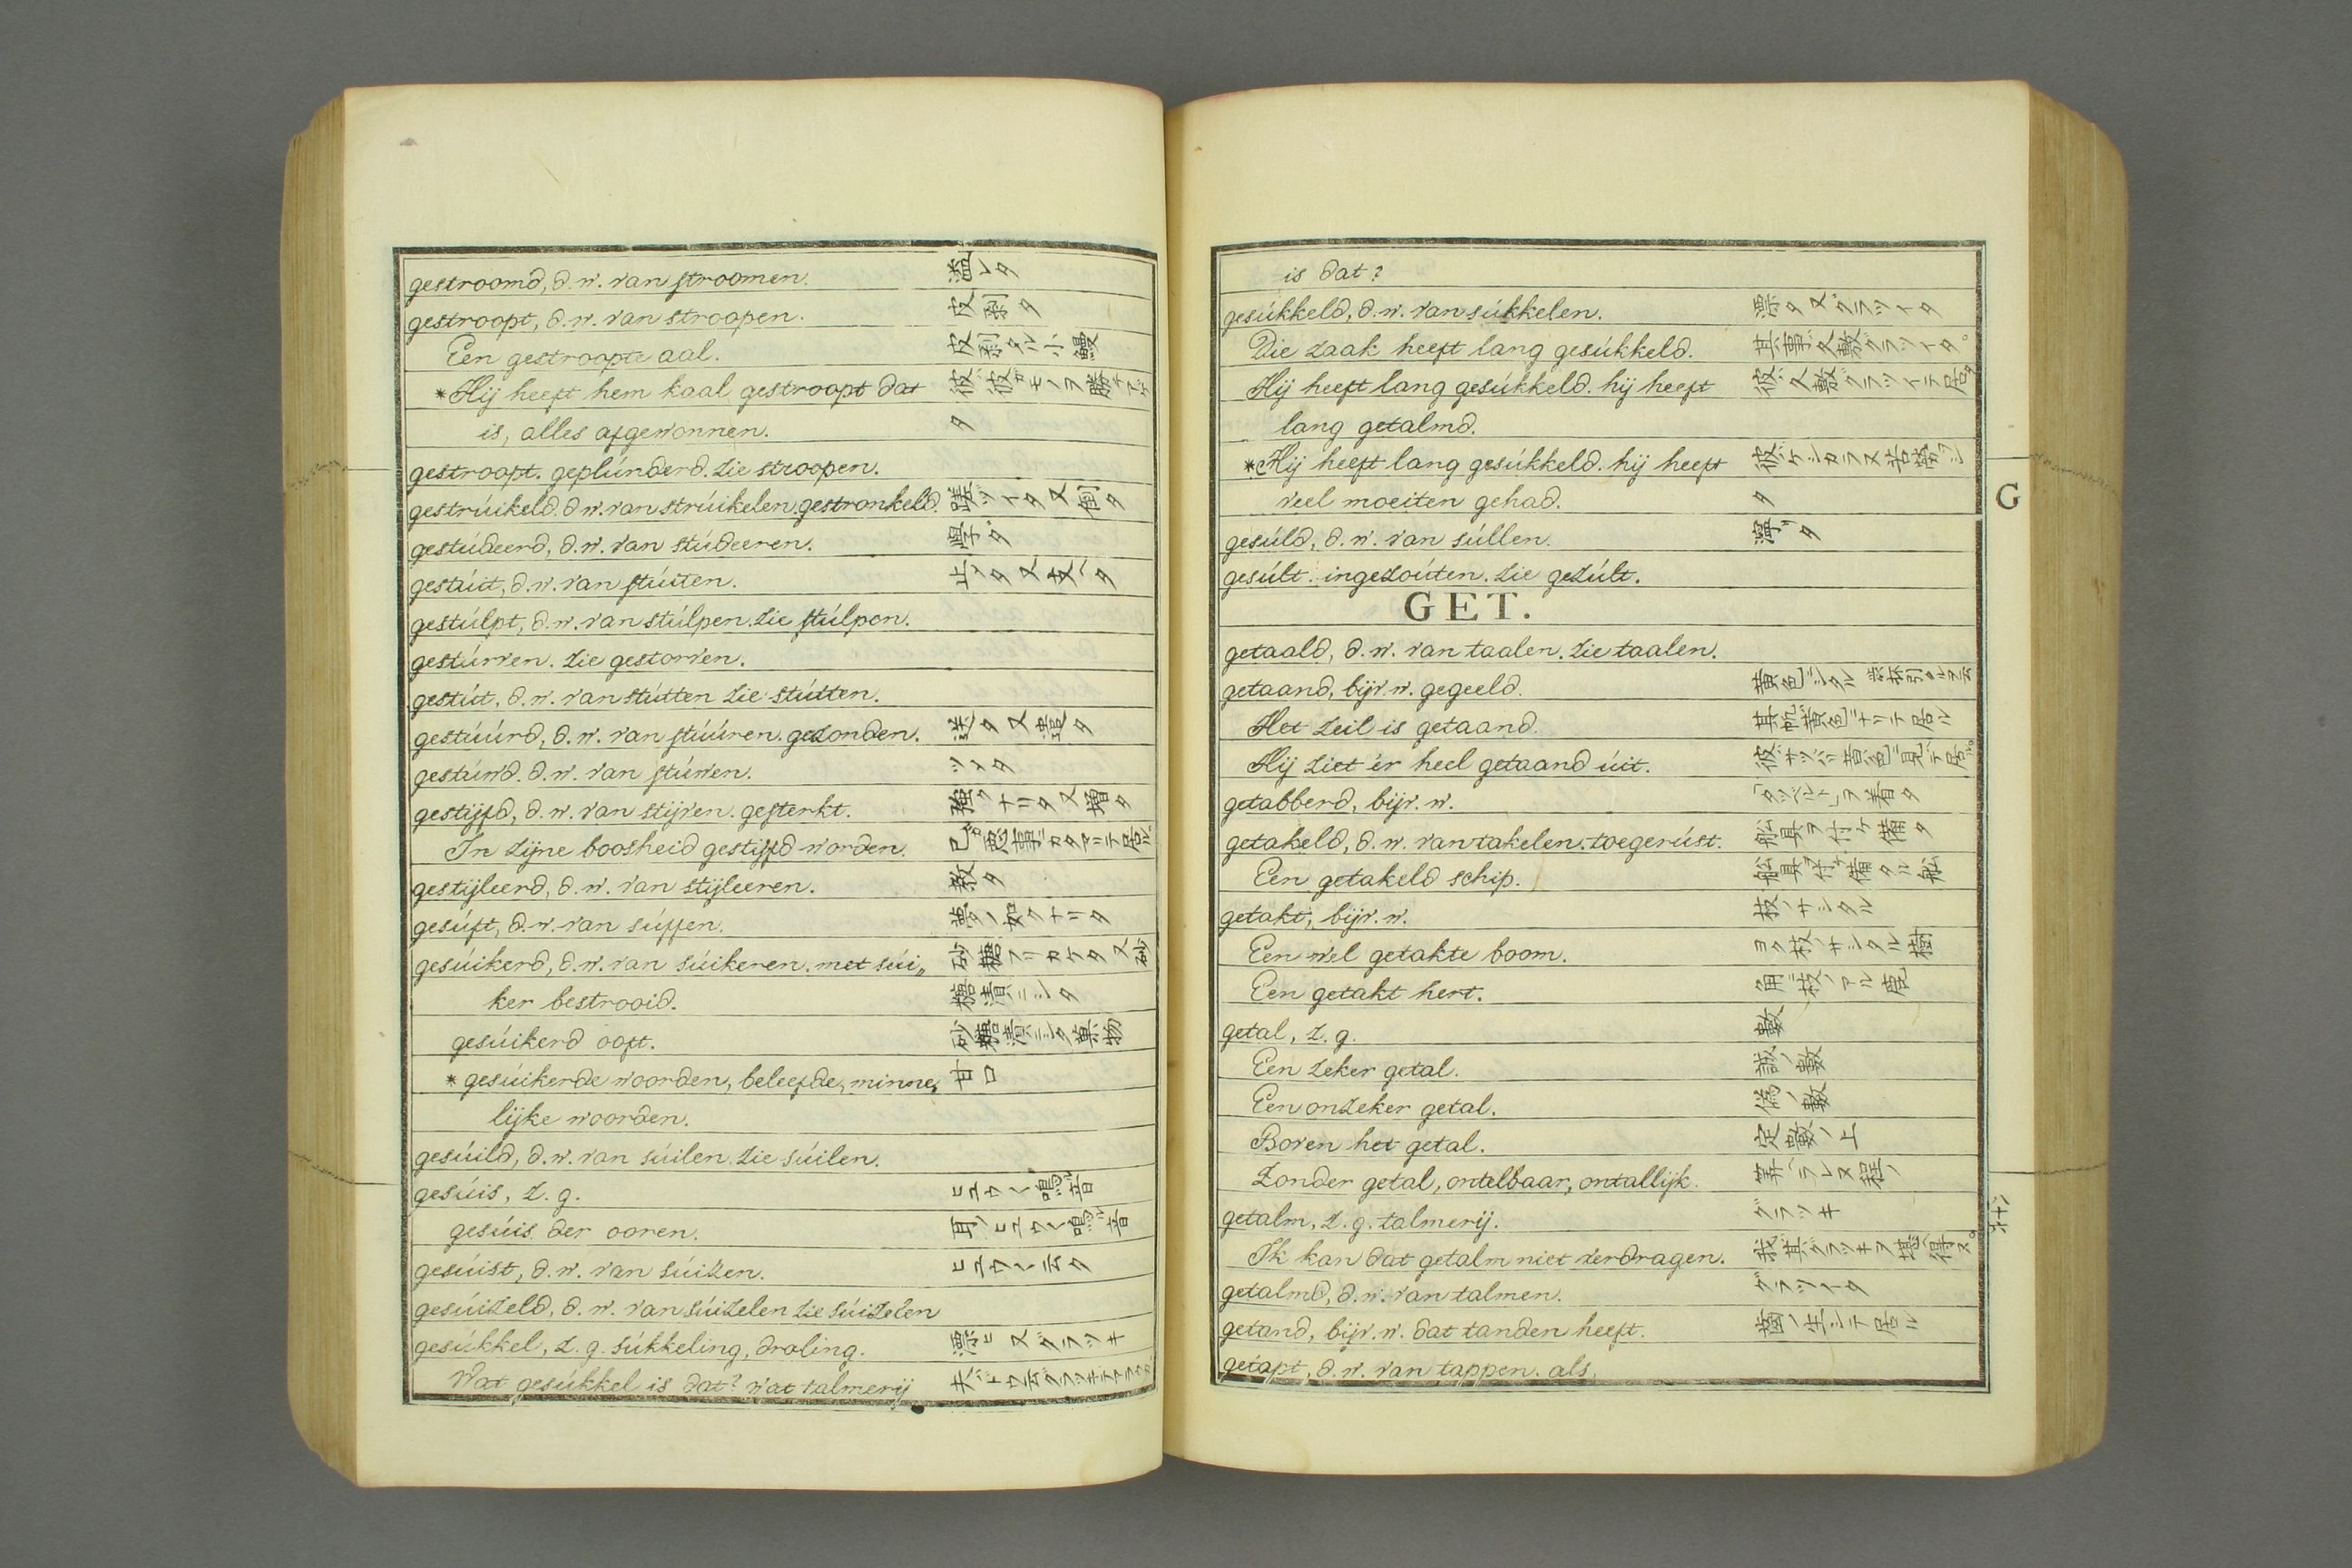 gestroomd, d.w. van stroomen. 溢レタ
gestroopt, d.w. van stroopen. 皮剥タ
Een gestroopte aal. 皮剥タル小鰻
*Hij heeft hem kaal gestroopt dat
is, alles afgewonnen. タ
gestroopt. geplúnderd. zie stroopen.
gestrúikeld. d w. van strúikelen. gestronkeld. 蹉ツイタ又倒タ
gestúdeerd, d.w. van stúdeeren. 學ダ
gestúit, d.w. van stúiten. 止メタ又支ヘタ
gestúlpt, d.w. van stúlpen. zie stúlpen.
gestúrven. zie gestorven.
gestút, d.w. van stútten zie stútten.
gestúúrd, d.w. van stúúren. gezonden. 送タ又遣タ
gestúwd. d.w. van stúwen. ツメタ
gestijfd, d.w. van stijven. gesterkt. 強クナリタ又増タ
In zijne boosheid gestijfd worden. 己ガ悪事ニカタマリテ居ル
gestijleerd, d.w. van stijleeren. 教タ
gesúft, d.w. van súffen. 夢ノ如クナリタ
gesúikerd, d.w. van súikeren. met súi„ 砂糖フリカケタ又砂
ker bestrooid. 糖漬ニシタ
gesúikerd ooft. 砂糖漬ニシタ菓物
*gesúikerde woorden, beleefde, minne„ 甘口
lijke woorden.
gesúild, d.w. van súilen. zie súilen.
gesúis, z.g. ヒュウ〱鳴ル音
gesúis der ooren. 耳ノヒュウ〱鳴ル音
gesúist, d.w. van súizen. ヒュウ〱云タ
gesúizeld, d.w. van súizelen zie súizelen
gesúkkel, z.g. súkkeling, draling. 漂ヒ又グラツキ
Wat gesúkkel is dat? wat talmerij
is dat?
gesúkkeld, d.w. van súkkelen. 漂タ又グラツイタ
Die zaak heeft lang gesúkkeld. 其事ハ久敷グラツイタ。
Hij heeft lang gesúkkeld. hij heeft 彼ハ久敷グラツイテ居タ
lang getalmd.
*Hij heeft lang gesúkkeld. hij heeft 彼ハケシカラヌ苦労ヲシ
veel moeiten gehad. タ
gesúld, d.w. van súllen. 滑リタ
gesúlt. ingezoúten. zie gezúlt.
G
GET.
getaald, d.w. van taalen. zie taalen.
getaand, bijv.w. gegeeld. 黄色ニシタル
Het zeil is getaand. 其帆ハ黄色ニナリテ居ル
Hij ziet ér heel getaand úit. 彼ハサッパリ黄色ニ見ヘテ居ル。
getabberd, bijv.w. 「タッベルト」ヲ着タ
getakeld, d.w. van takelen. toegerúst. 船具ヲ付ケ備タ
Een getakeld schip. 船具ヲ付ケ備タル船
getakt, bijv.w. 枝ノサシタル
Een wel getakte boom. ヨク枝ノサシタル樹
Een getakt hert. 角ニ枝ノアル鹿
getal, z.g. 數
Een zeker getal. 誠ノ數
Een onzeker getal. 偽ノ數
Boven het getal. 定數ノ上
Zonder getal, ontelbaar, ontallijk. 算ヘラレヌ程ノ
getalm, z.g. talmerij. グラツキ
Ik kan dat getalm niet verdragen. 我ハ其グラツキヲ堪ヘ得ヌ。
getalmd, d.w. van talmen. グラツイタ
getand, bijv.w. dat tanden heeft. 齒ノ生シテ居ル
getapt, d.w. van tappen. als.